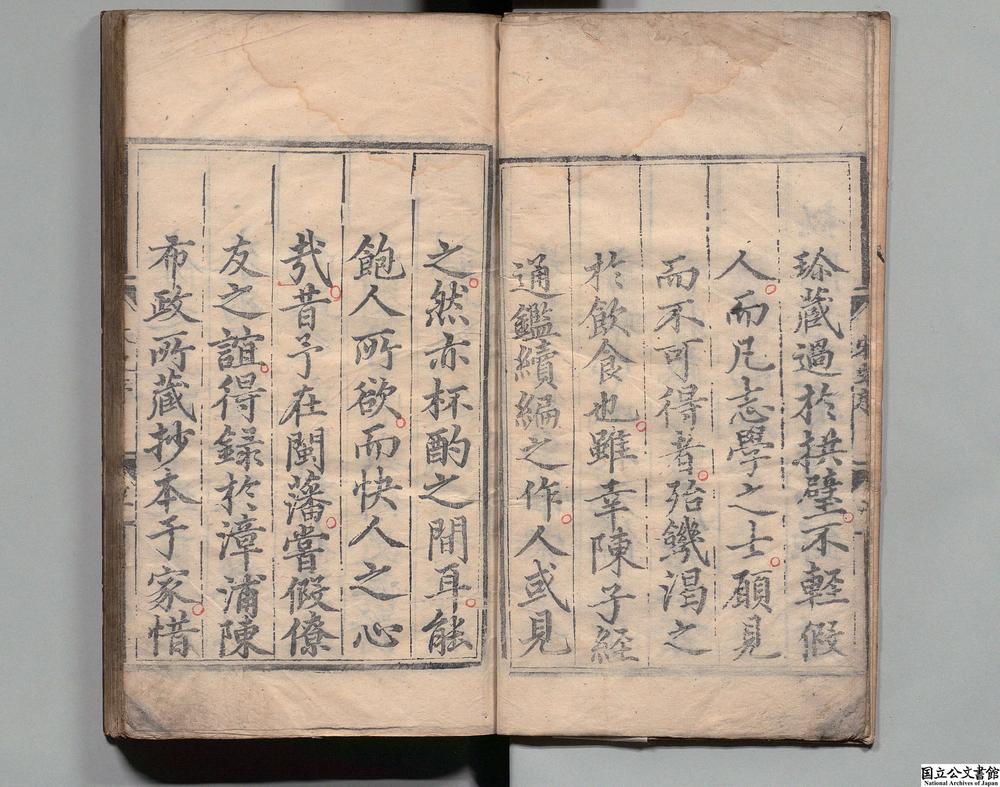 珎藏過於拱璧不輕假
人而凡志學之士願見
而不可得者殆饑渴之
於飲食也雖幸陳子經
通鑑續編之作人或見
之然亦杯酌之間耳能
飽人所欲而快人之心
㢤昔予在閩藩嘗假僚
友之誼得録於漳浦陳
布政所藏抄本子家惜
国立公文書館
National Archives of Japan